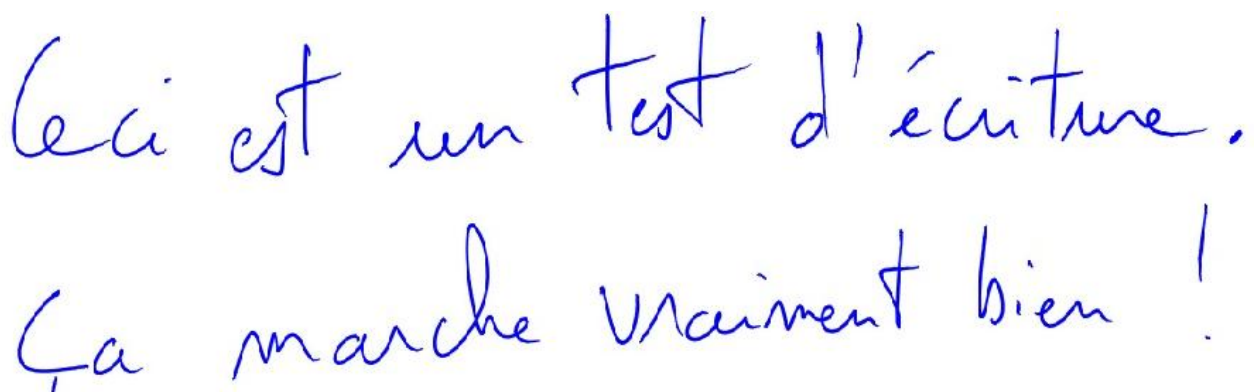 Ceci est un test d'écriture.
Ça marche vraiment bien !